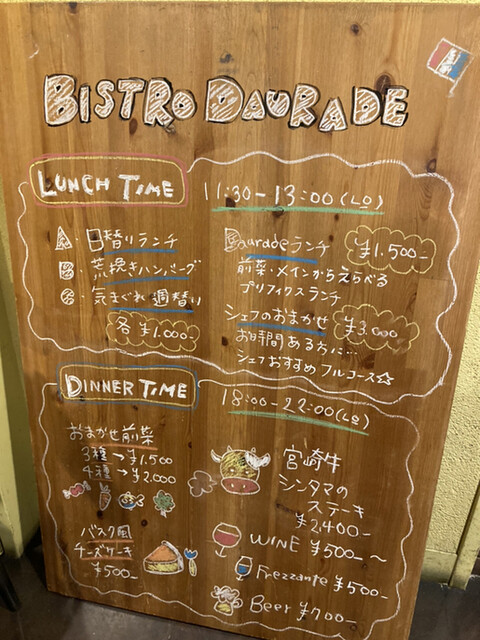 BISTRO DAURADE
LUNCH TIME
11:30-13:00(LO)
A・日替りランチ
B・荒挽きハンバーグ
C・気まぐれ週替り
各¥1.000-
Dauradeランチ ¥1.500-
前菜・メインからえらべる
プリフィクスランチ
シェフのおまかせ ¥3.000
お時間ある方に…
シェフおすすめフルコース☆
DINNER TIME
18:00-22:00(LO)
おまかせ前菜
3種→¥1.500
4種→¥2.000
バスク風
チーズケーキ
¥500-
宮崎牛
シンタマの
ステーキ
¥2,400-
WINE ¥500-~
Frezzante ¥500-
Beer ¥700-